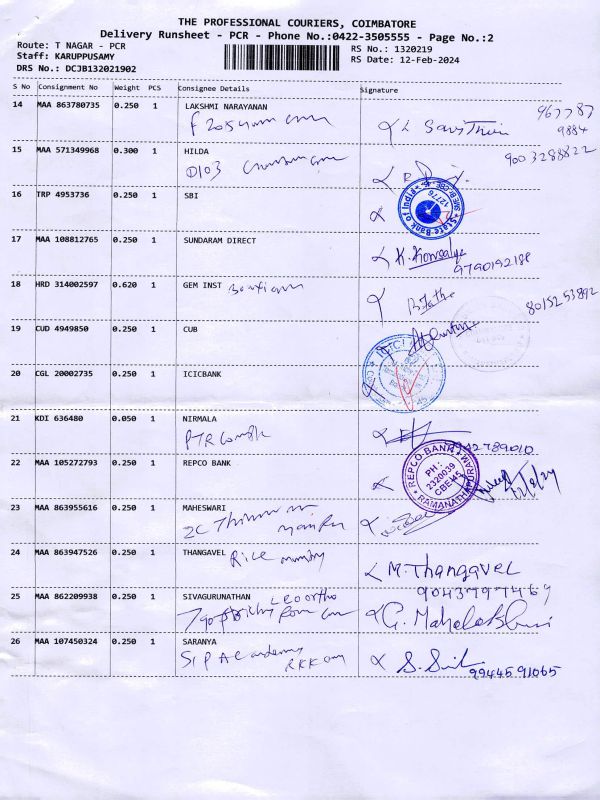 THE PROFESSIONAL COURIERS, COIMBATORE
Delivery Runsheet - PCR - Phone No.:0422-3505555 - Page No.:2
Route: T NAGAR - PCR
Staff: KARUPPUSAMY
DRS No.: DCJB132021902
RS No.: 1320219
RS Date: 12-Feb-2024
S No Consignment No Weight PCS Consignee Details Signature
14 MAA 863780735 0.250 1 LAKSHMI NARAYANAN
9884
15 MAA 571349968 0.300 1 HILDA
D103
9003288822
16 TRP 4953736 0.250 1 SBI
State Bank of India
12776
17 MAA 108812765 0.250 1 SUNDARAM DIRECT
K. Kowsalya
9790192188
18 HRD 314002597 0.620 1 GEM INST
8015253892
19 CUD 4949850 0.250 1 CUB
20 CGL 20002735 0.250 1 ICICBANK
21 KDI 636480 0.050 1 NIRMALA
PTR
9942789010
22 MAA 105272793 0.250 1 REPCO BANK
REPCO BANK
PH:
2320039
CBE-45
RAMANATHAPURAM
12/2/24
23 MAA 863955616 0.250 1 MAHESWARI
2C
24 THANGAVEL MAA 863947526 0.250 1
Rice
M. Thangavel
9043797469
25 MAA 862209938 0.250 1 SIVAGURUNATHAN
LEO ortho
G. Mahalakshmi
26 MAA 107450324 0.250 1 SARANYA
SIP Academy
9944591065